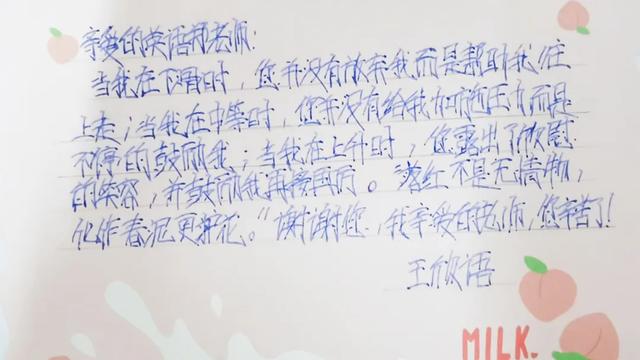 亲爱的英语郭老师:
当我在下滑时,您并没有放弃我而是帮助我往
上走;当我在中等时,您并没有给我加施压力而是
不停的鼓励我;当我在上升时,您露出了欣慰
的笑容,并鼓励我再接再厉。“落红不是无情物,
化作春泥更护花。”谢谢您,我亲爱的老师,您辛苦了!
王欣语
MILK.